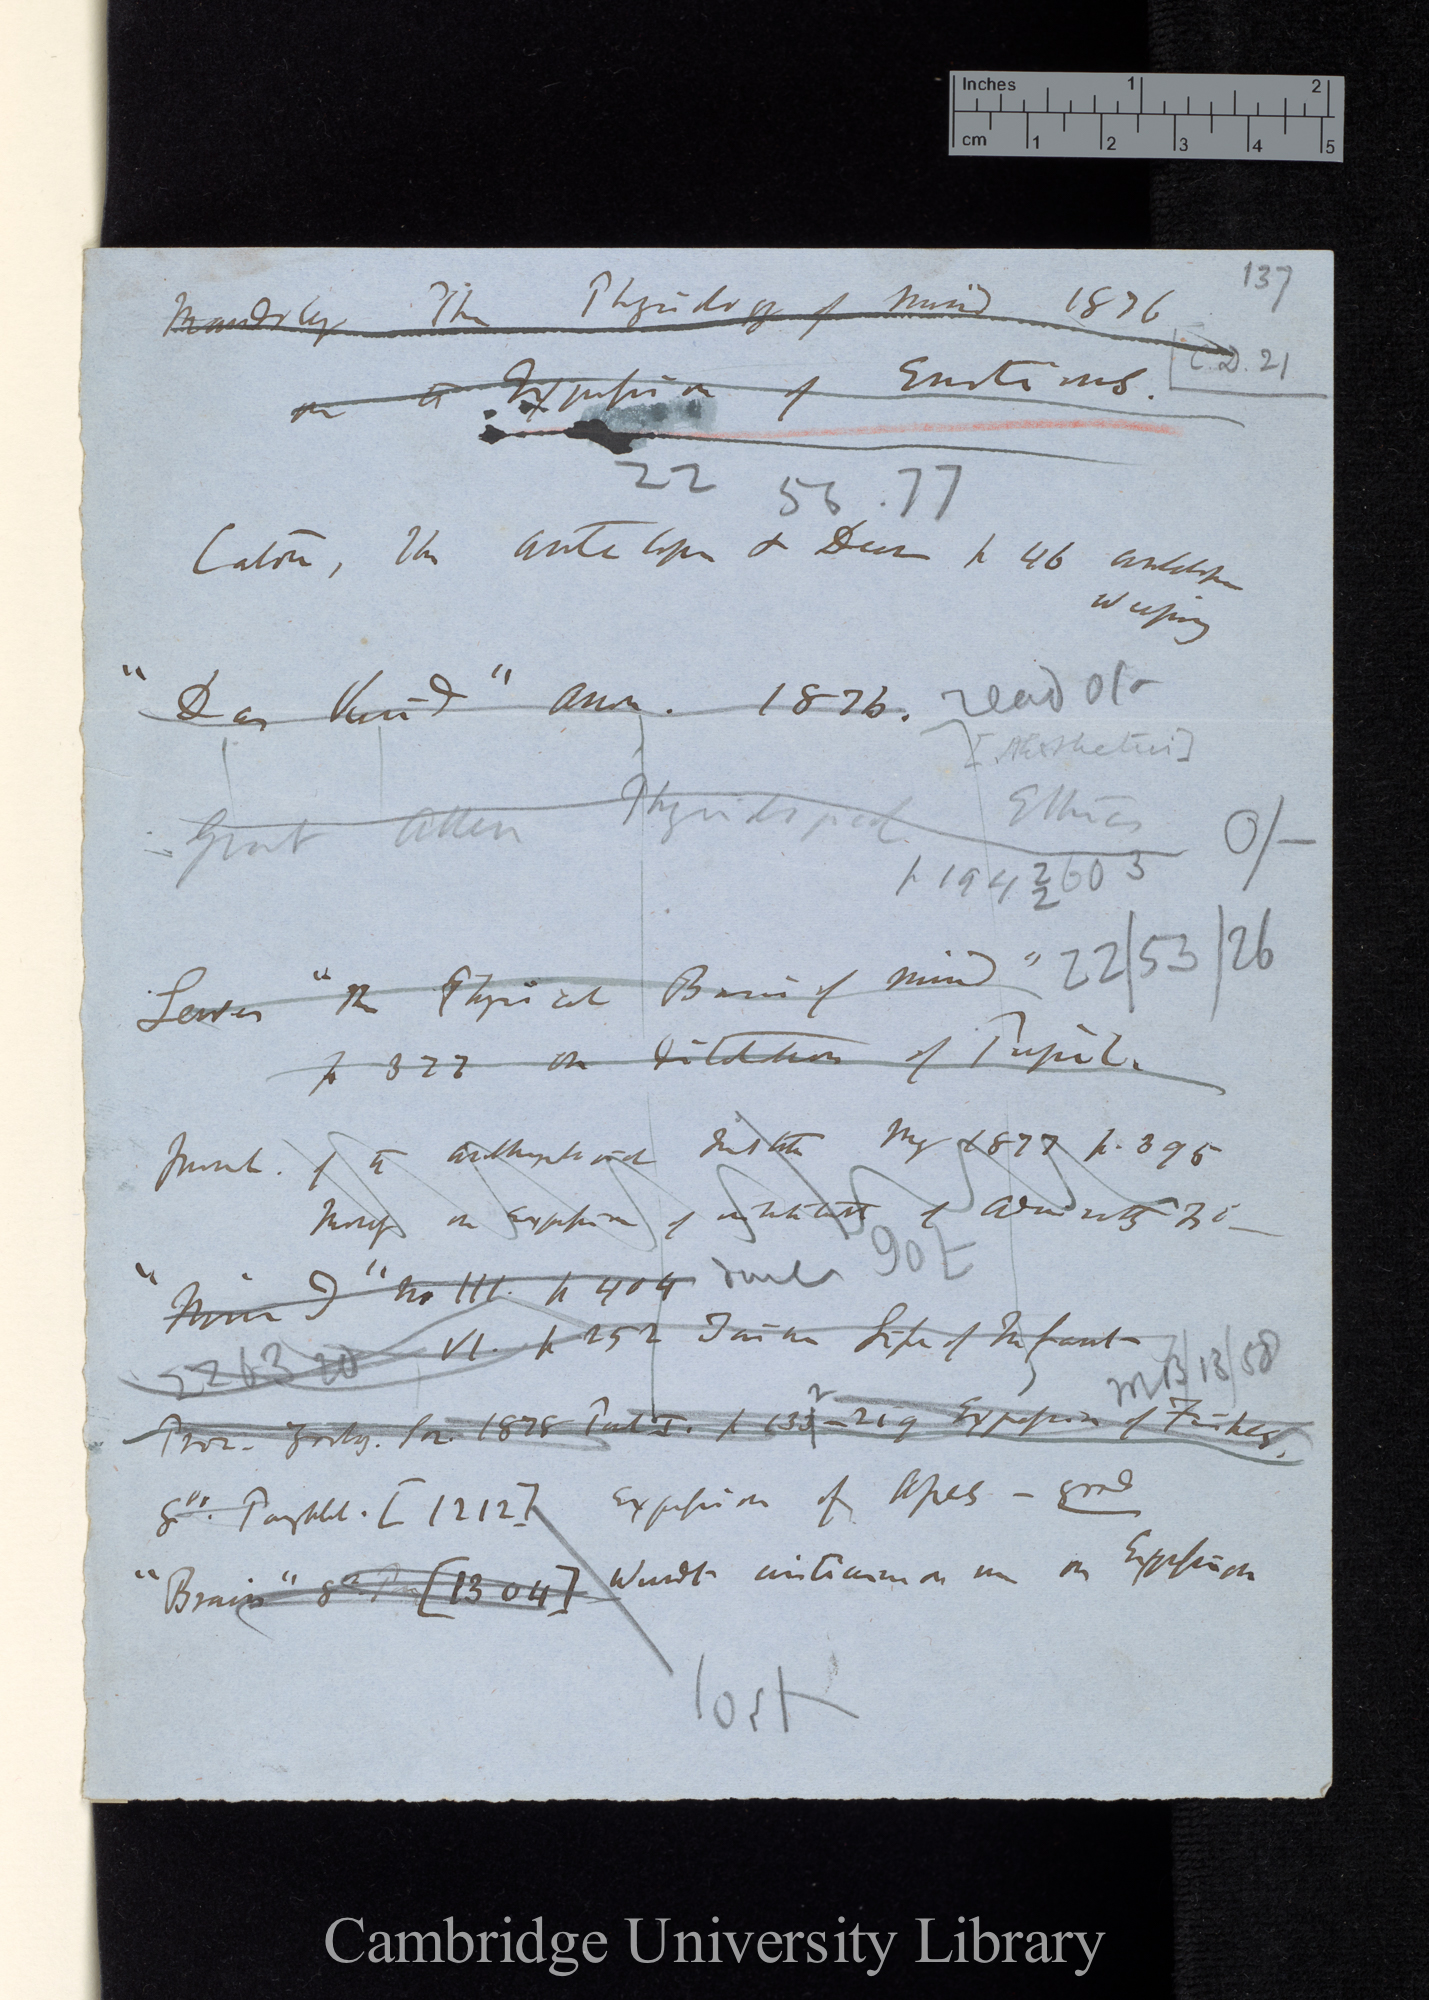 Inches 1 2
cm 1 2 3 4 5
137
Maudsley The Physiology of Mind 1876
C.D. 21
on the Expression of Emotions.
22 56.77
Caton, The antelope & Deer p 46 antelope
weeping
"Das Kind" anon. 1876. read O/-
[Aesthetics]
Grant Allen Physiological Ethics O/-
p 194 2603
Lewes "The Physical Basis of Mind" 22/53/26
p 377 on dilatation of Pupil.
Journal. of the Anthropolog Institute 1877 p. 395
on Expression of
got
"Mind" no III. p 404
VI. p 252 Taine Life of Infant
226320
MB/13/58
Proc. Zoolog. Soc. 1878 Part I. p 132–219 Expression of Fishes.
8vo. Pamphlet. [1212] Expression of Apes – good
"Brain" 8vo [1304] Wundt criticism on me on Expression
lost
Cambridge University Library